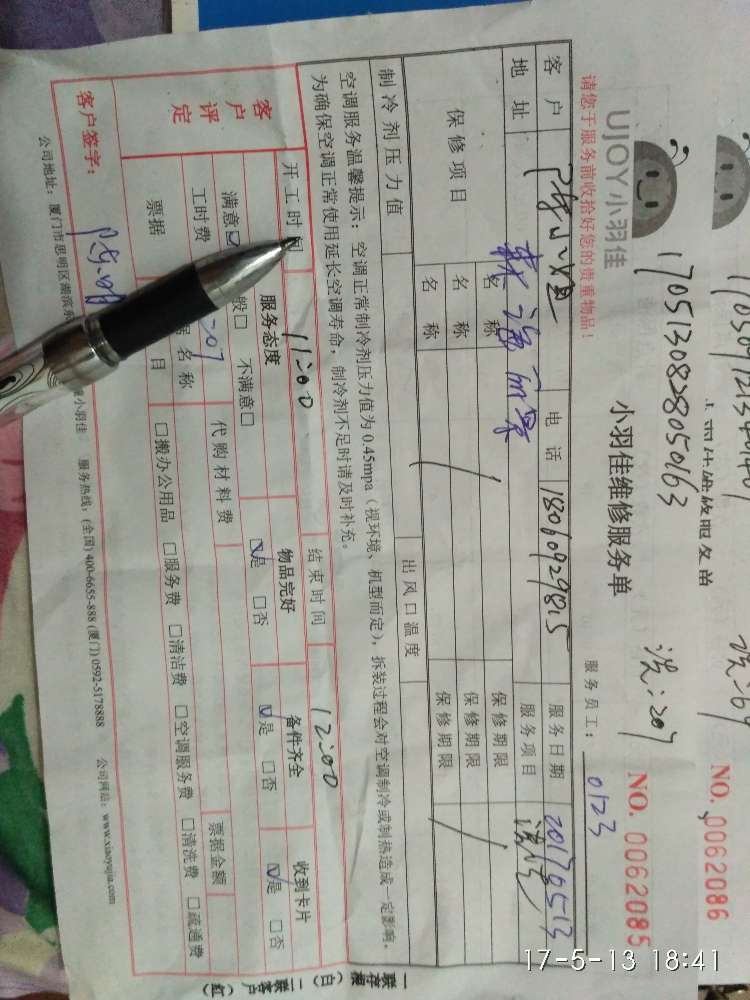 NO. 0062086
1705130828050163
洗:207
NO. 0062085
UJOY小羽佳
小羽佳维修服务单
服务员工: 0123
请您于服务前收拾好您的贵重物品!
客户
电话 18060929815
服务日期 20170513
地址
服务项目 清洗
保修项目
名称
保修期限
名称
保修期限
名称
保修期限
制冷剂压力值
出风口温度
空调服务温馨提示:空调正常制冷剂压力值为0.45mpa(视环境、机型而定),拆装过程会对空调制冷或制热造成一定影响,
为确保空调正常使用延长空调寿命,制冷剂不足时请及时补充。
开工时间 11:00 结束时间 12:00
客户评定
服务态度 物品完好 备件齐全 收到卡片
满意☑ 般□ 不满意□ ☑是 □否 ☑是 □否 ☑是 □否
工时费 207 代购材料费 票据金额
票据
名称
目 □搬办公用品 □服务费 □清洁费 □空调服务费 □清洗费 □疏通费
客户签字:
公司地址:厦门市思明区湖滨 小羽佳 服务热线:(全国)400-6655-888 (厦门)0592-5178888 公司网站:www.xiaoyujia.com
一联存根(白) 二联客户(红)
17-5-13 18:41